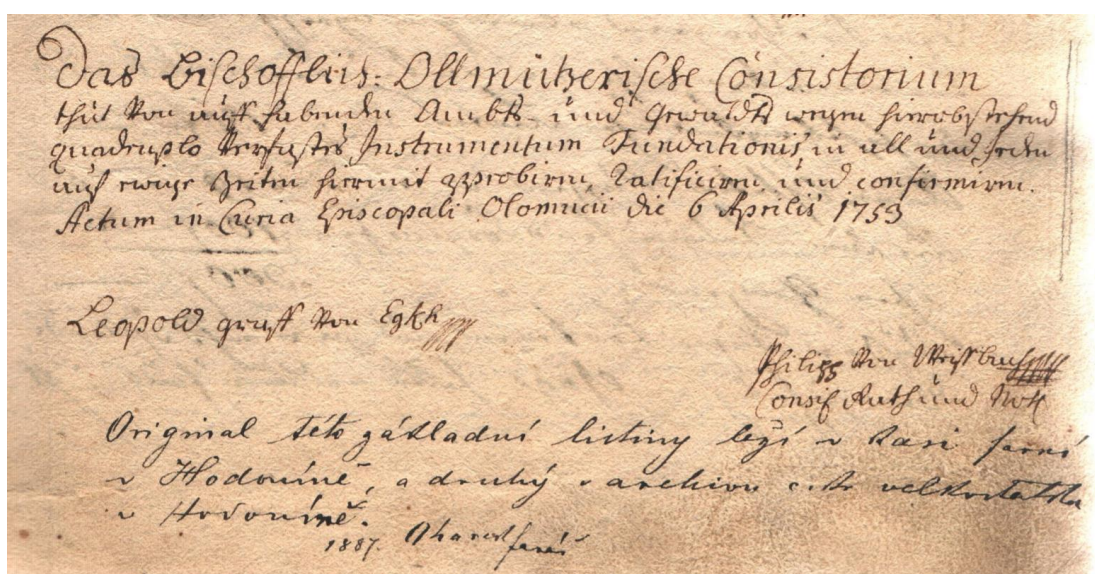 Das Bischofflich: Ollmützerische Consistorium
thut Von auff habenden Ambts- und Gewaldts wegen hierobstehend
quadruplo Verfastes Instrumentum Fundationis in all und jeden
auf ewige Zeiten hiermit approbiren, Ratificiren und confirmiren.
Actum in Curia Episcopali Olomucii die 6 Aprilis 1753
Leopold graff Von Egkh
Philipp Von Weissbach
Consis Rath und Nott
Original této základní listiny leží v kasi farní
v Hodoníně, a druhý v archivu velkostatku
v Hodoníně.
1887. farář